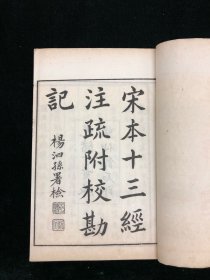 宋本十三經
注疏附校勘
記
楊泗孫署檢